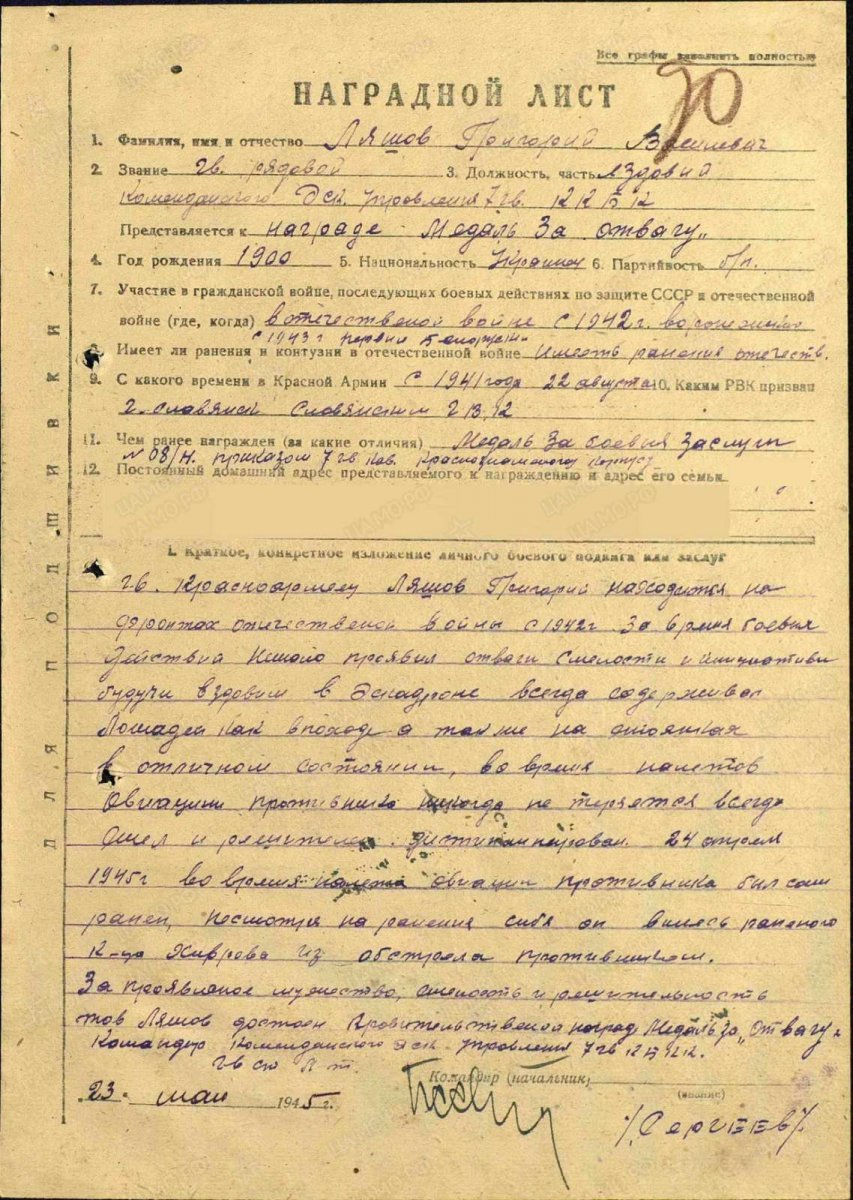 Все графы заполнить полностью
90
НАГРАДНОЙ ЛИСТ
1. Фамилия, имя и отчество Ляшов Григорий Васильевич
2. Звание гв. рядовой 3. Должность, часть ездовий
Комендантского Эск. управления 7 гв.
Представляется к награде Медаль За отвагу"
4. Год рождения 1900 5. Национальность Украинец 6. Партийность б/п.
7. Участие в гражданской войне, последующих боевых действиях по защите СССР и отечественной
войне (где, когда) в отечественой войне с 1942 г.
с 1943 г первий
8. Имеет ли ранения и контузии в отечественной войне имееть ранения отечеств.
9. С какого времени в Красной Армии с 1941 года 22 августа 10. Каким РВК призван
г. Славянск
11. Чем ранее награжден (за какие отличия) Медаль За боевия Заслуги
N 08/Н. приказом 7 гв Кав. Краснознаменого Корпуса
12. Постоянный домашний адрес представляемого к награждению и адрес его семьи
I. Краткое, конкретное изложение личного боевого подвига или заслуг
гв. Красноармеец Ляшов Григорий находится на
фронтах отечественой войны с 1942 г. За время боевия
действий Немало проявил отваги Смелости и инициативи
будучи ездовим в Эскадроне всегда содерживал
Лошадей как в походе а так же на стоянках
в отличном состоянии, во время налетов
Авиации противника никогда не теряется всегда
смел и решителен. 24 апреля
1945 г во время налета авиации противника бил сам
ранен, несмотря на ранения себя он винесь раненого
к-ца из обстрела противником.
За проявленое мужество, смелость и решительность
тов Ляшов достоен Правительственой наград Медаль за „Отвагу"
Командир Комендантского Эск управления 7 гв
гв ст Л-т.
Командир (начальник)
(звание)
23. мая 1945 г.
/Сергеев/
ДЛЯ ПОДШИВКИ